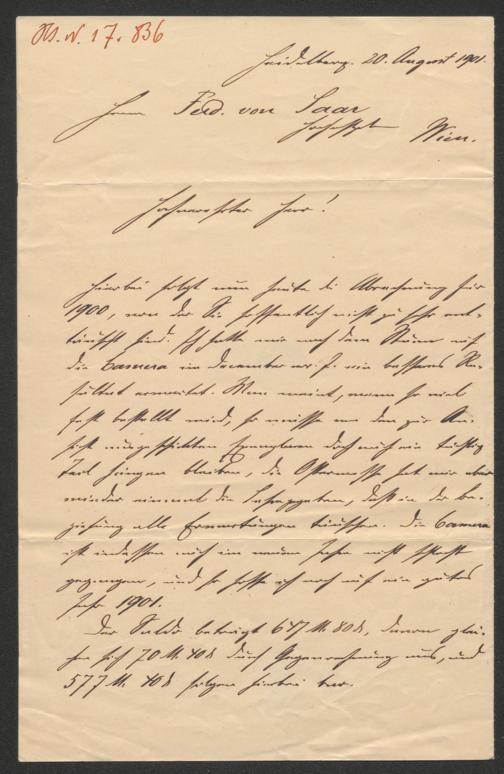 H. N. 17.836
Heidelberg. 20. August 1901.
Herrn Ferd. von Saar
Wien.
Hochverehrter Herr!
Hierbei folgt nun heute die Abrechnung für
1900, von der Sie hoffentlich nicht zu sehr ent-
täuscht sind. Ich hatte mir nach dem
die Camera im December ein besseres Re-
sultat erwartet. Man meint, wenn so viel
fest bestellt wird, so müsse von den zur An-
sicht Exemplaren doch noch ein tüchtig
Teil hängen bleiben, die Ostermesse hat mir aber
wieder einmal die Lehre gegeben, daß in der Be-
ziehung alle Erwartungen täuschen. Die Camera
ist indessen auch im neuen Jahr nicht schlecht
gegangen, und so hoffe ich noch auf ein gutes
Jahr 1901.
Der Saldo beträgt 647 M 80 d, davon glei-
chen sich 70 M 40 d durch Gegenrechnung aus, und
577 M. 40 d folgen hierbei bar.